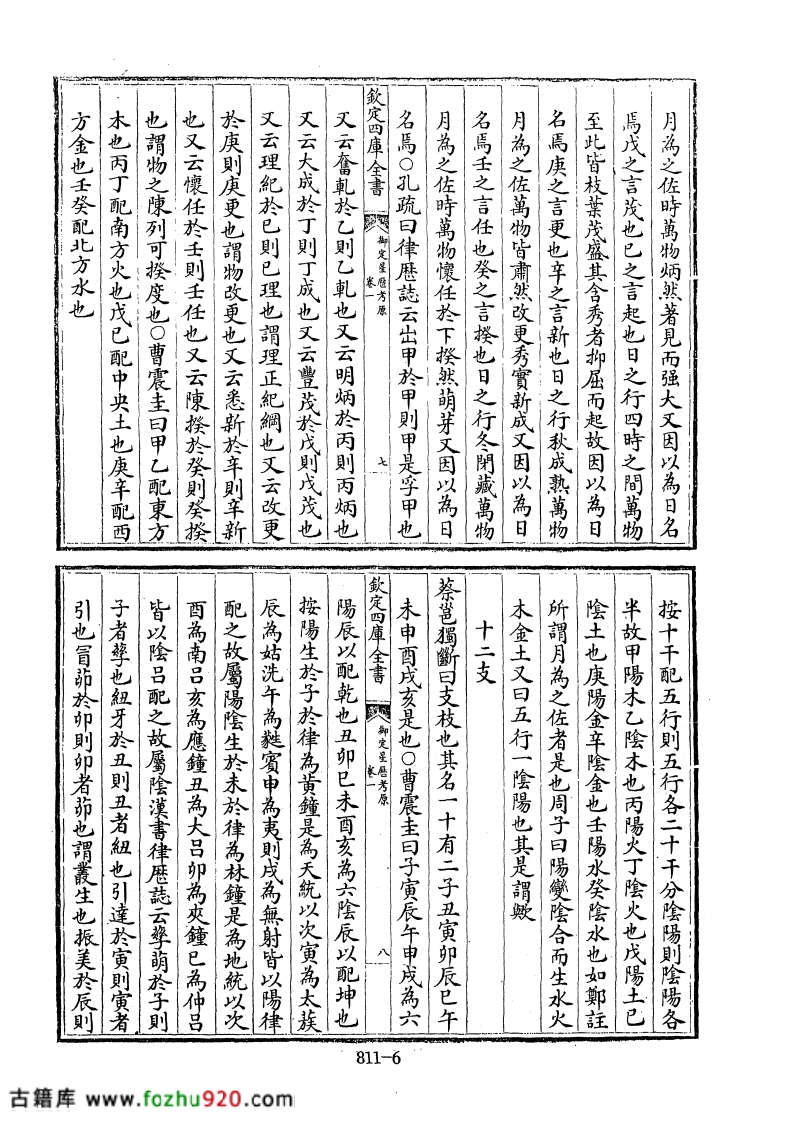 月為之佐時萬物炳然著見而强大又因以為日名
焉戊之言茂也巳之言起也日之行四時之間萬物
至此皆枝葉茂盛其含秀者抑屈而起故因以為日
名焉庚之言更也辛之言新也日之行秋成熟萬物
月為之佐萬物皆肅然改更秀實新成又因以為日
名焉壬之言任也癸之言揆也日之行冬閉藏萬物
月為之佐時萬物懷任於下揆然萌芽又因以為日
名焉○孔疏曰律歴誌云出甲於甲則甲是孚甲也
欽定四庫全書
御定星歴考原
卷一
七
又云奮軋於乙則乙軋也又云明炳於丙則丙炳也
又云大成於丁則丁成也又云豐茂於戊則戊茂也
又云理紀於巳則巳理也謂理正紀綱也又云改更
於庚則庚更也謂物改更也又云悉新於辛則辛新
也又云懷任於壬則壬任也又云陳揆於癸則癸揆
也謂物之陳列可揆度也○曹震圭曰甲乙配東方
木也丙丁配南方火也戊巳配中央土也庚辛配西
方金也壬癸配北方水也
按十干配五行則五行各二十干分陰陽則陰陽各
半故甲陽木乙陰木也丙陽火丁陰火也戊陽土巳
陰土也庚陽金辛陰金也壬陽水癸陰水也如鄭註
所謂月為之佐者是也周子曰陽變陰合而生水火
木金土又曰五行一陰陽也其是謂歟
十二支
蔡邕獨斷曰支枝也其名一十有二子丑寅卯辰巳午
未申酉戌亥是也○曹震圭曰子寅辰午申戌為六
欽定四庫全書
御定星歴考原
卷一
八
陽辰以配乾也丑卯巳未酉亥為六陰辰以配坤也
按陽生於子於律為黃鐘是為天統以次寅為太蔟
辰為姑洗午為蕤賓申為夷則戌為無射皆以陽律
配之故屬陽陰生於未於律為林鐘是為地統以次
酉為南呂亥為應鐘丑為大呂卯為夾鐘巳為仲呂
皆以陰呂配之故屬陰漢書律歴誌云孳萌於子則
子者孳也紐牙於丑則丑者紐也引達於寅則寅者
引也冒茆於卯則卯者茆也謂叢生也振美於辰則
811-6
古籍库 www.fozhu920.com